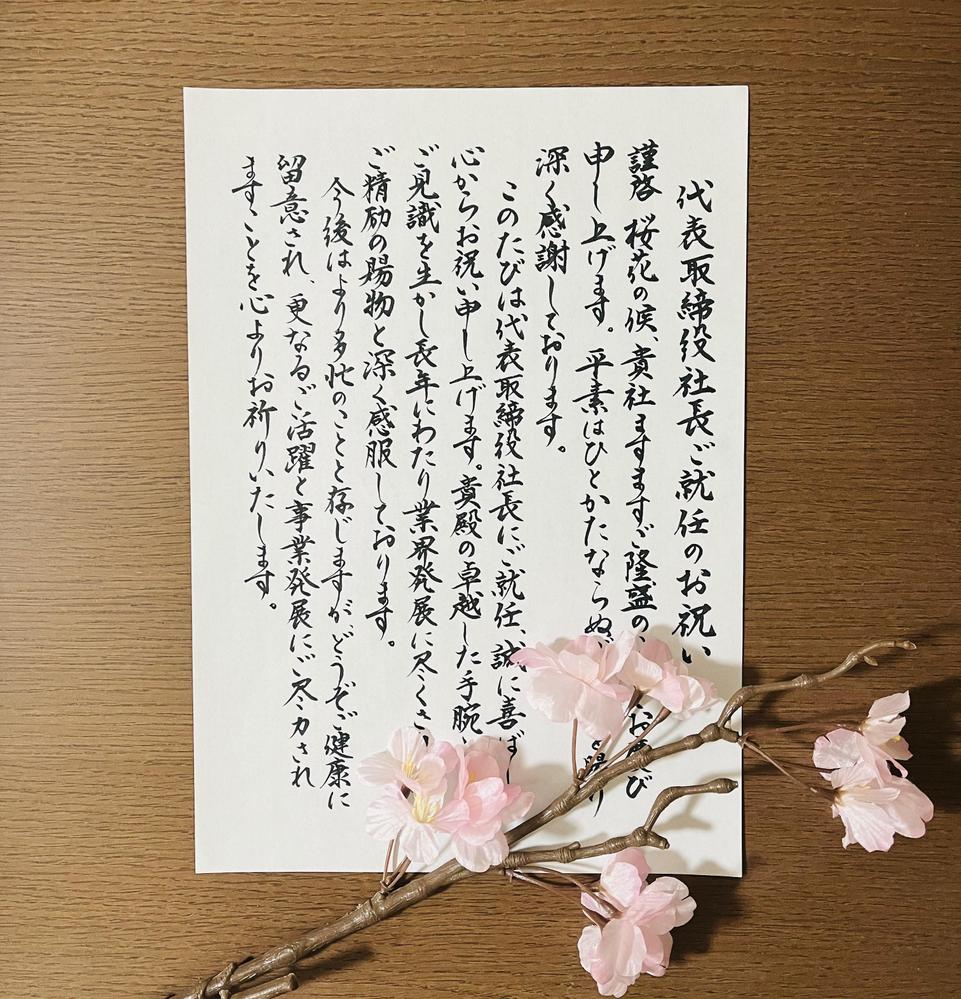 代表取締役社長ご就任のお祝い
謹啓 桜花の候、貴社ますますご隆盛の お慶び
申し上げます。平素はひとかたならぬ 賜り
深く感謝しております。
このたびは代表取締役社長にご就任、誠に喜ば
心からお祝い申し上げます。貴殿の卓越した手腕
ご見識を生かし長年にわたり業界発展に尽くさ
ご精励の賜物と深く感服しております。
今後はより多忙のことと存じますが、どうぞご健康に
留意され、更なるご活躍と事業発展にご尽力され
ますことを心よりお祈りいたします。